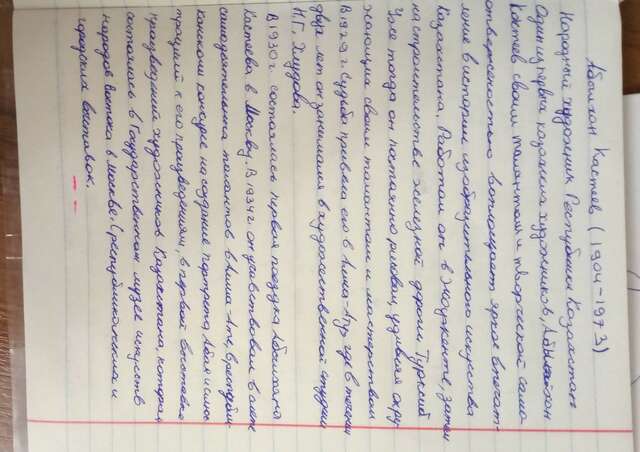 Абылхан Кастеев (1904-1973)
Народный художник Республики Казахстан
Один из первых художников, Абылхан
Кастеев своим талантом и творческой само
отверженностью воплощает яркое впечат-
ление в истории изобразительного искусства
Казахстана. Работал он в Жаркенте, затем
на строительстве железной дороги Турксиб
Уже тогда он постоянно рисовал, удивляя окру-
жающих своим талантом и мастерством
В 1929 г. Судьба привела его в Алма-Ату где в течении
двух лет он занимался в художественной студии
Н.Г. Хлудова.
В 1930 г. состоялась первая поездка Абылхана
Кастеева в Москву. В 1934 г. он участвовал в
самодеятельных талантов в Алма-Ате, в республи
канском конкурсе на создание портрета Абая и
к его произведениям, в первой выставке
произведений художников Казахстана, которая
состоялась в Государственном музее искусств
народов Востока в Москве. (республиканских и
городских выставок.